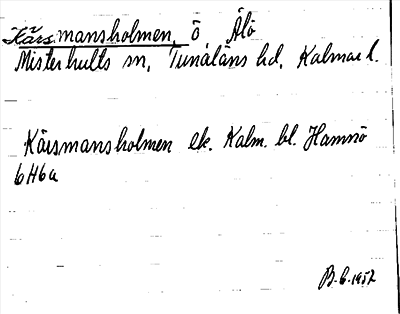 Kårsmansholmen, ö Älö
Misterhults sn, Tunaläns hd, Kalmar l.
Kårsmansholmen ek. Kalm. bl. Hamnö
6H6a
B.G. 1952